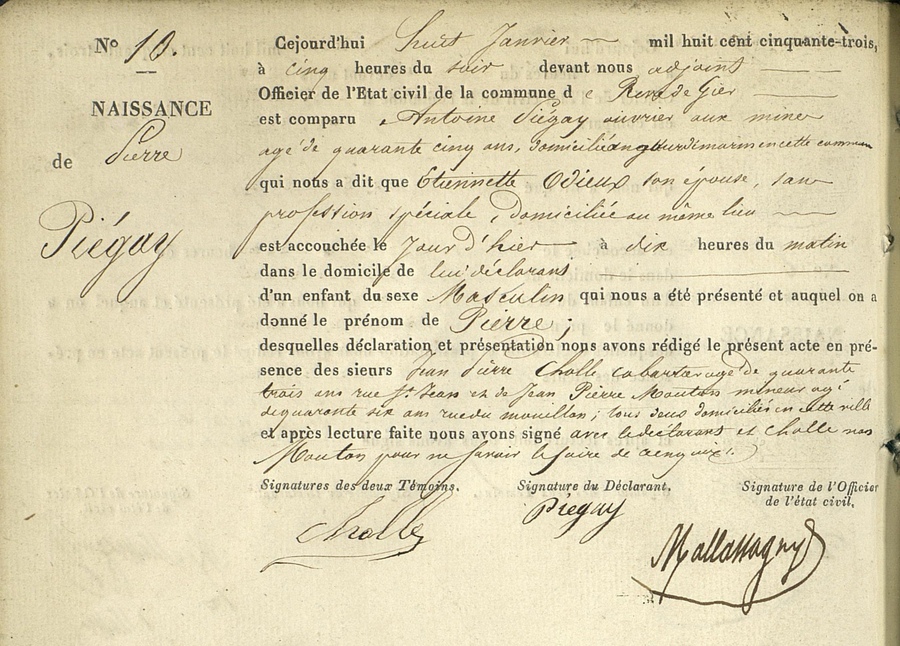 No 10.
NAISSANCE
de Pierre
Piégay
Cejourd'hui huit Janvier mil huit cent cinquante-trois,
à cinq heures du soir devant nous adjoint
Officier de l'Etat civil de la commune de Rive de Gier
est comparu Antoine Piégay ouvrier aux mines
agé de quarante cinq ans, domicilié en cette commune
qui nous a dit que Etiennette Odieux son épouse, sans
profession spéciale, domiciliée au même lieu
est accouchée le jour d'hier à dix heures du matin
dans le domicile de lui déclarant
d'un enfant du sexe Masculin qui nous a été présenté et auquel on a
donné le prénom de Pierre;
desquelles déclaration et présentation nous avons rédigé le présent acte en pré-
sence des sieurs Jean Pierre Cholle, cabartier agé de quarante
trois ans rue St Jean et de Jean Pierre Mouton mineur agé
de quarante six ans rue du mouillon; tous deux domiciliés en cette ville
et après lecture faite nous avons signé avec le déclarant et Cholle non
Mouton pour ne savoir le faire de ce
Signatures des deux Témoins. Signature du Déclarant, Signature de l'Officier
de l'état civil,
Cholle
Piegay